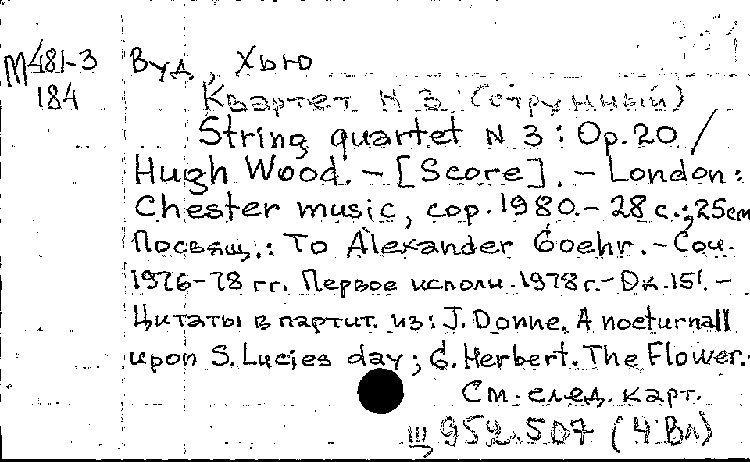 М481-3 Вуд, Хью
184
Квартет N 3 (струнный)
String quartet N 3 : Op. 20 /
Hugh Wood. – [Score]. – London :
Chester music, cop. 1980. – 28 с.; 25cm
Посвящ.: To Alexander Goehr. – Соч.
1976–78 гг. Первое исполн. 1978 г. – Дк. 151. –
Цитаты в партит. из: J. Donne. A nocturnall
upon S. Lucies day ; G. Herbert. The Flower. –
См. след. карт.
Щ 952.507 (4Вл)